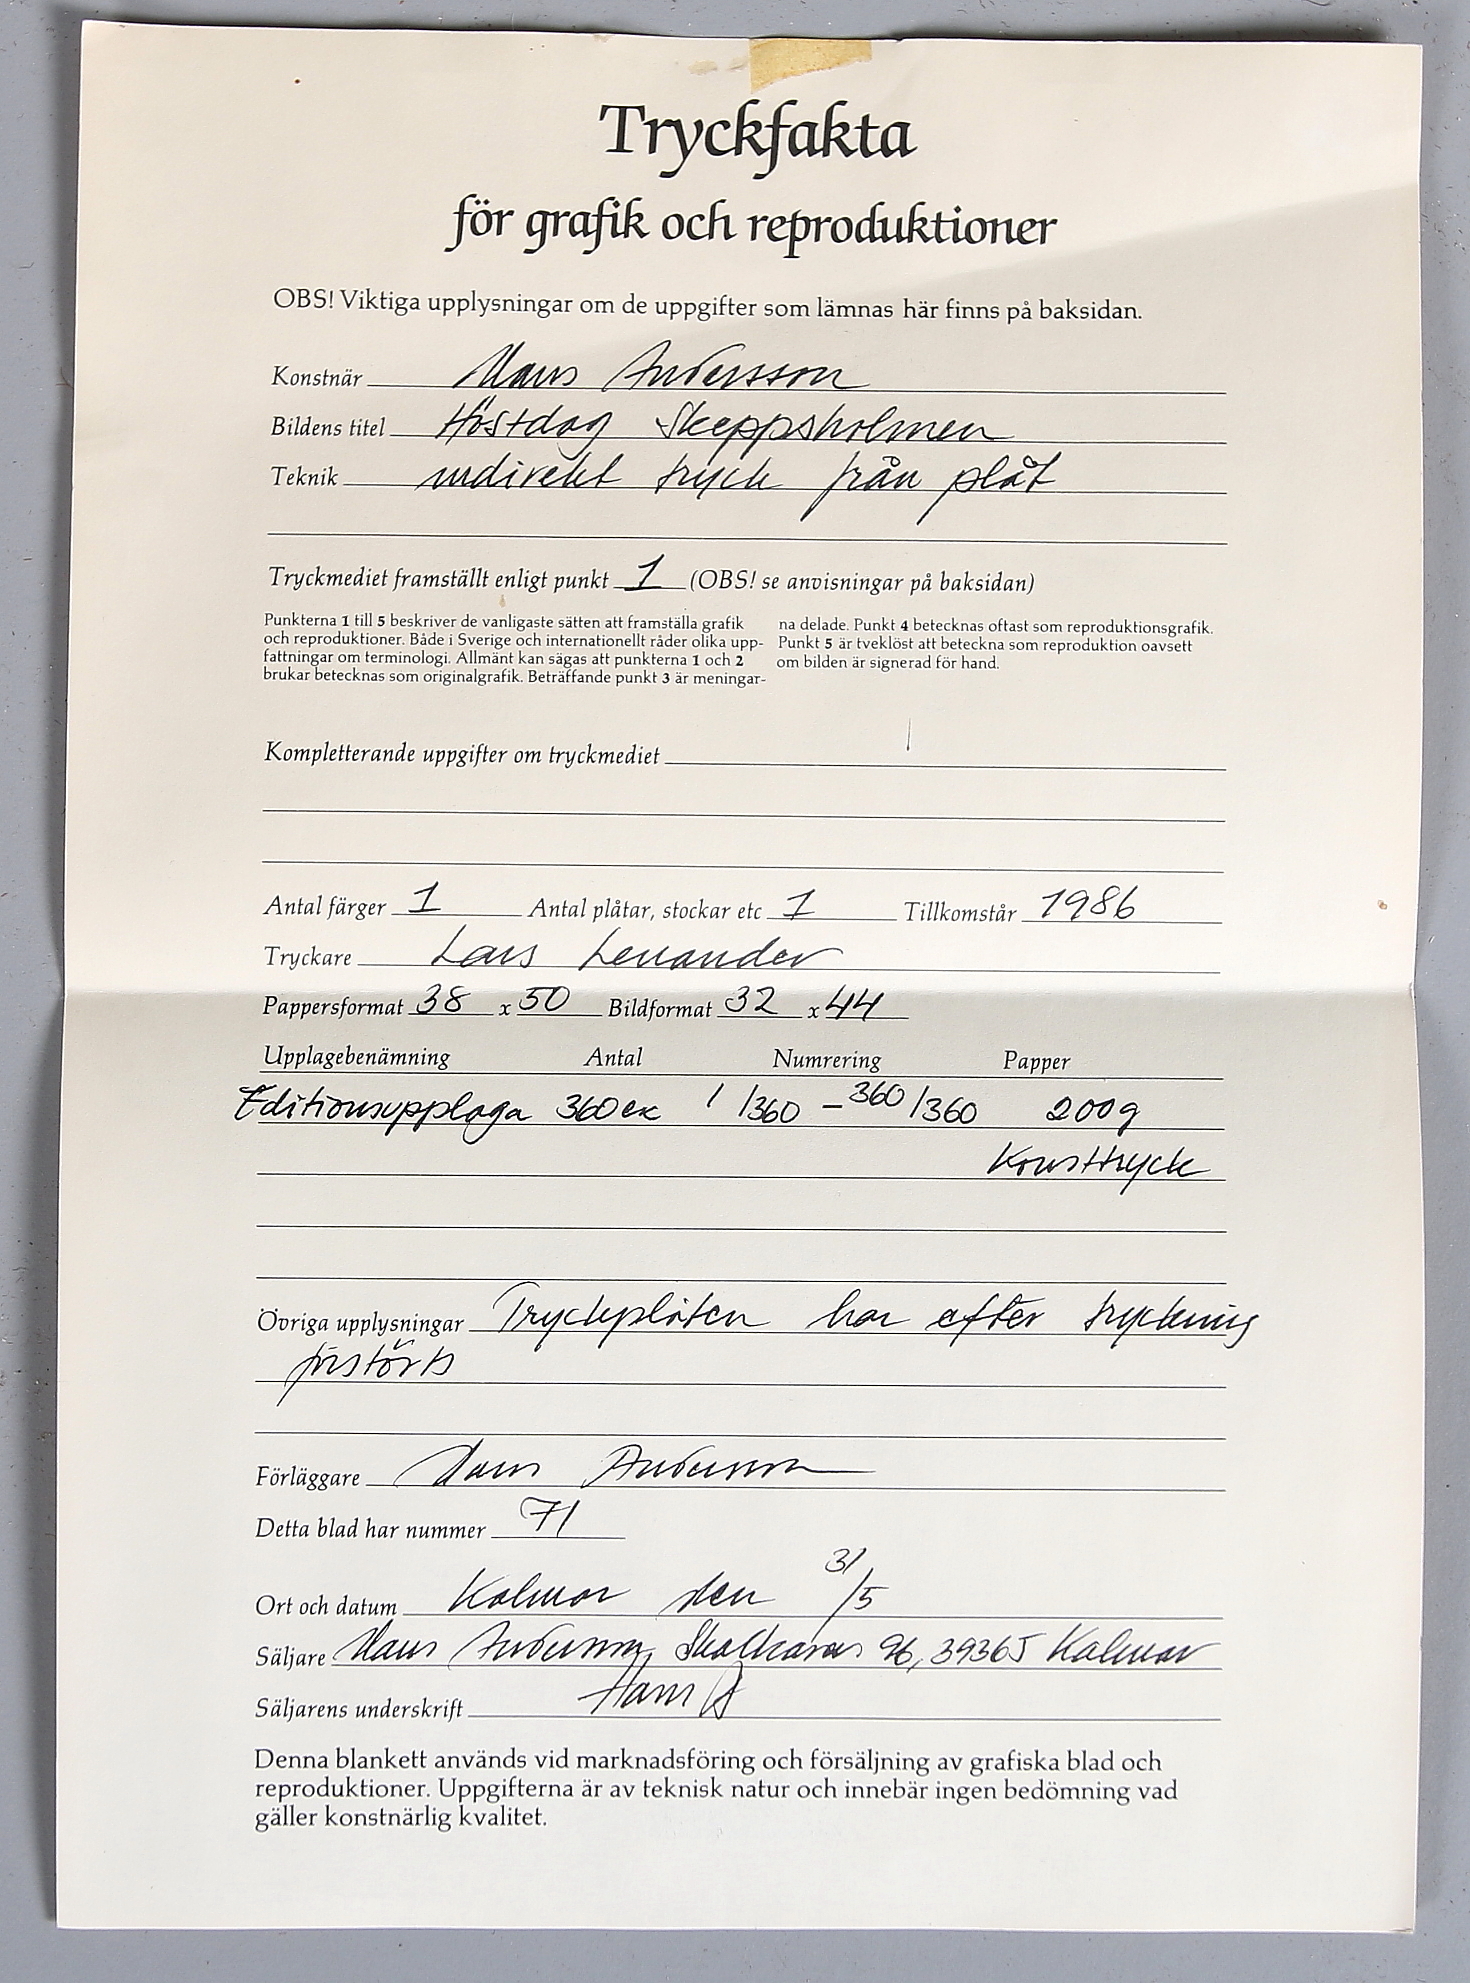 Tryckfakta
för grafik och reproduktioner
OBS! Viktiga upplysningar om de uppgifter som lämnas här finns på baksidan.
Konstnär Hans Andersson
Bildens titel Höstdag Skeppsholmen
Teknik indirekt tryck från plåt
Tryckmediet framställt enligt punkt 1 (OBS! se anvisningar på baksidan)
Punkterna 1 till 5 beskriver de vanligaste sätten att framställa grafik
och reproduktioner. Både i Sverige och internationellt råder olika upp-
fattningar om terminologi. Allmänt kan sägas att punkterna 1 och 2
brukar betecknas som originalgrafik. Beträffande punkt 3 är meningar-
na delade. Punkt 4 betecknas oftast som reproduktionsgrafik.
Punkt 5 är tveklöst att beteckna som reproduktion oavsett
om bilden är signerad för hand.
Kompletterande uppgifter om tryckmediet
Antal färger 1 Antal plåtar, stockar etc 1 Tillkomstår 1986
Tryckare Lars Lenander
Pappersformat 38 x 50 Bildformat 32 x 44
Upplagebenämning Antal Numrering Papper
Editionsupplaga 360 ex 1/360 – 360/360 200g
Konsttryck
Övriga upplysningar Tryckplåten har efter tryckning
förstörts
Förläggare Hans Andersson
Detta blad har nummer 71
Ort och datum Kalmar den 31/5
Säljare Hans Andersson, 96, 39365 Kalmar
Säljarens underskrift Hans A
Denna blankett används vid marknadsföring och försäljning av grafiska blad och
reproduktioner. Uppgifterna är av teknisk natur och innebär ingen bedömning vad
gäller konstnärlig kvalitet.